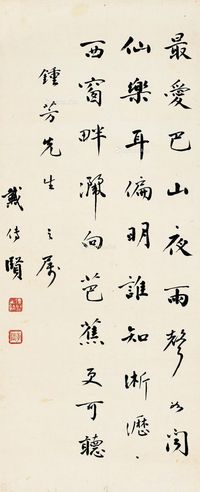 最愛巴山夜雨聲如聞
仙樂耳偏明誰知淅瀝
西窗畔滴向芭蕉更可聽
鍾芳先生之屬
戴傳賢